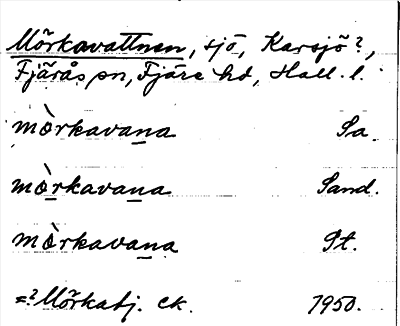 Mörkavattnen, sjö, Karsjö?,
Fjärås sn, Fjäre hd, Hall. l.
mòrkavana Sa.
mòrkavana Sand.
mòrkavana St.
=? Mörkatj. ek. 1950.